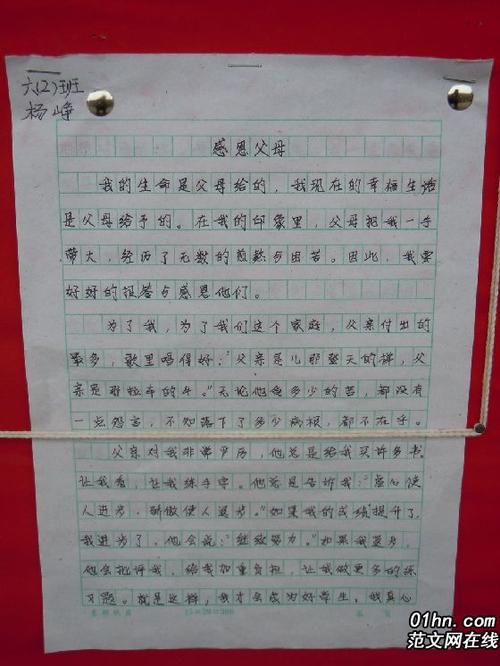 六(2)班
杨峥
感恩父母
我的生命是父母给的,我现在的幸福生活
是父母给予的。在我的印象里,父母把我一手
带大,经历了无数的煎熬与困苦。因此,我要
好好的报答与感恩他们。
为了我,为了我们这个家庭,父亲付出的
最多,歌里唱得好:“父亲是儿那登天的梯,父
亲是那拉车的牛。”无论他食多少的苦,都没有
一点怨言,不知落下了多少病根,都不在乎。
父亲对我非常严厉,他总是给我买许多书
让我看,让我练手字。他总是告诉我:“虚心使
人进步,骄傲使人退步。”如果我的成绩提升了,
我进步了,他会说:“继续努力。”如果我退步,
他会批评我,给我加重负担,让我做更多的练
习题。就是这样,我才会成为好学生,我真心
15×20=300
01hn.com
范文网在线